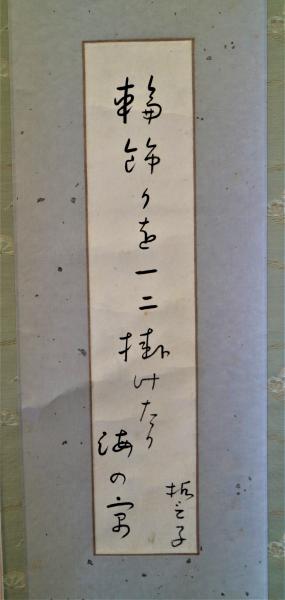 輪飾りを一二掛けたり
海の家